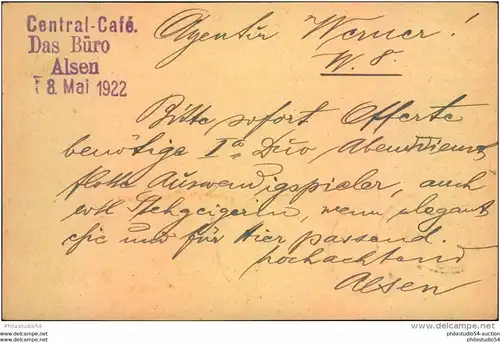 Central-Café.
Das Büro
Alsen
18. Mai 1922
Agentur Werner!
W. 8.
Bitte sofort Offerte
benötige Ia Duo Abenddienst
flotte Auswendigspieler, auch
evtl Stehgeigerin, wenn elegant
chic und für Hier passend.
hochachtend
Alsen
Philastudio54
Philastudio54-auction
philastudio54
www.delcampe.net
philastudio54